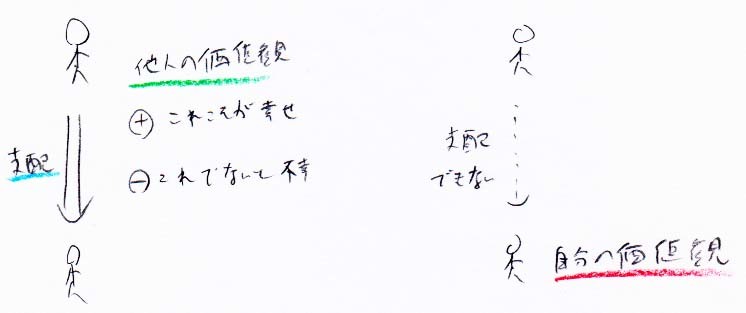 他人の価値観
⊕ これこそが幸せ
支配
⊖ これでないと不幸
支配
できない
自分の価値観